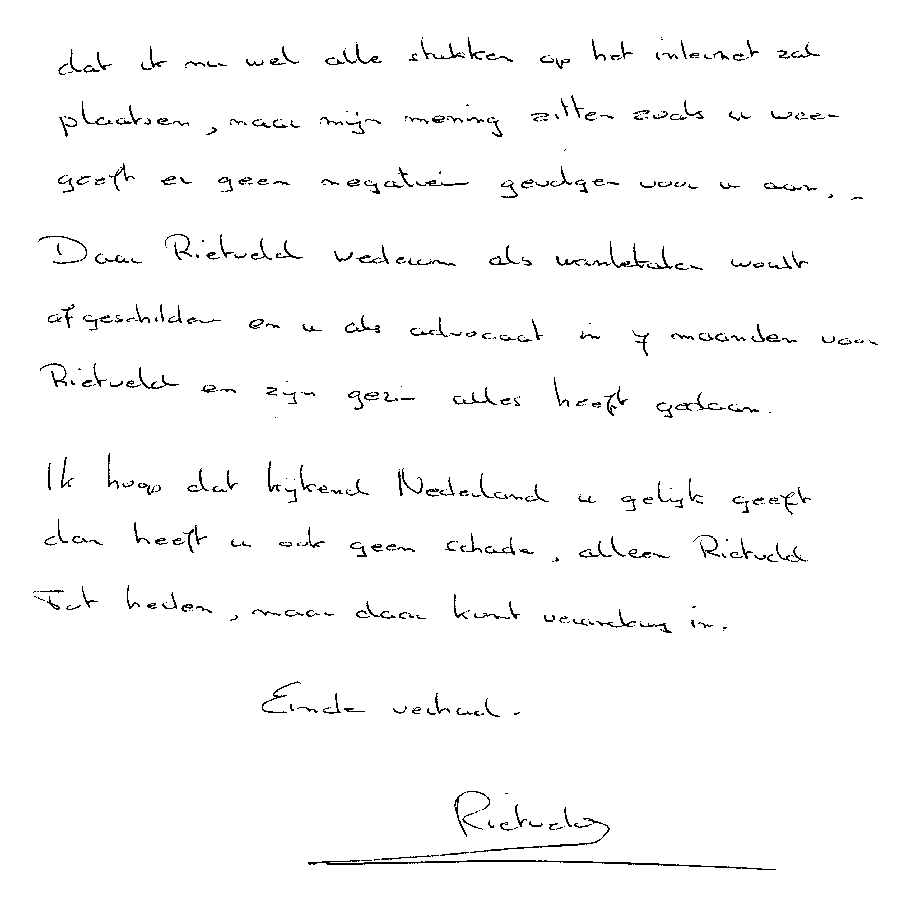 dat ik nu wel alle stukken op het internet zal
plaatsen, naar mijn mening zitten zoals u weer-
geeft er geen negatiev gevolgen voor u aan.
Daar Rietveld wederom als wanbetaler wordt
afgeschilderd en u als advocaat in 7 maanden voor
Rietveld en zijn gezin alles heeft gedaan.
Ik hoop dat kijkend Nederland u gelijk geeft
dan heeft u ook geen schade, alleen Rietveld
Tot heden, maar daar komt verandering in.
Einde verhaal.
Rietveld